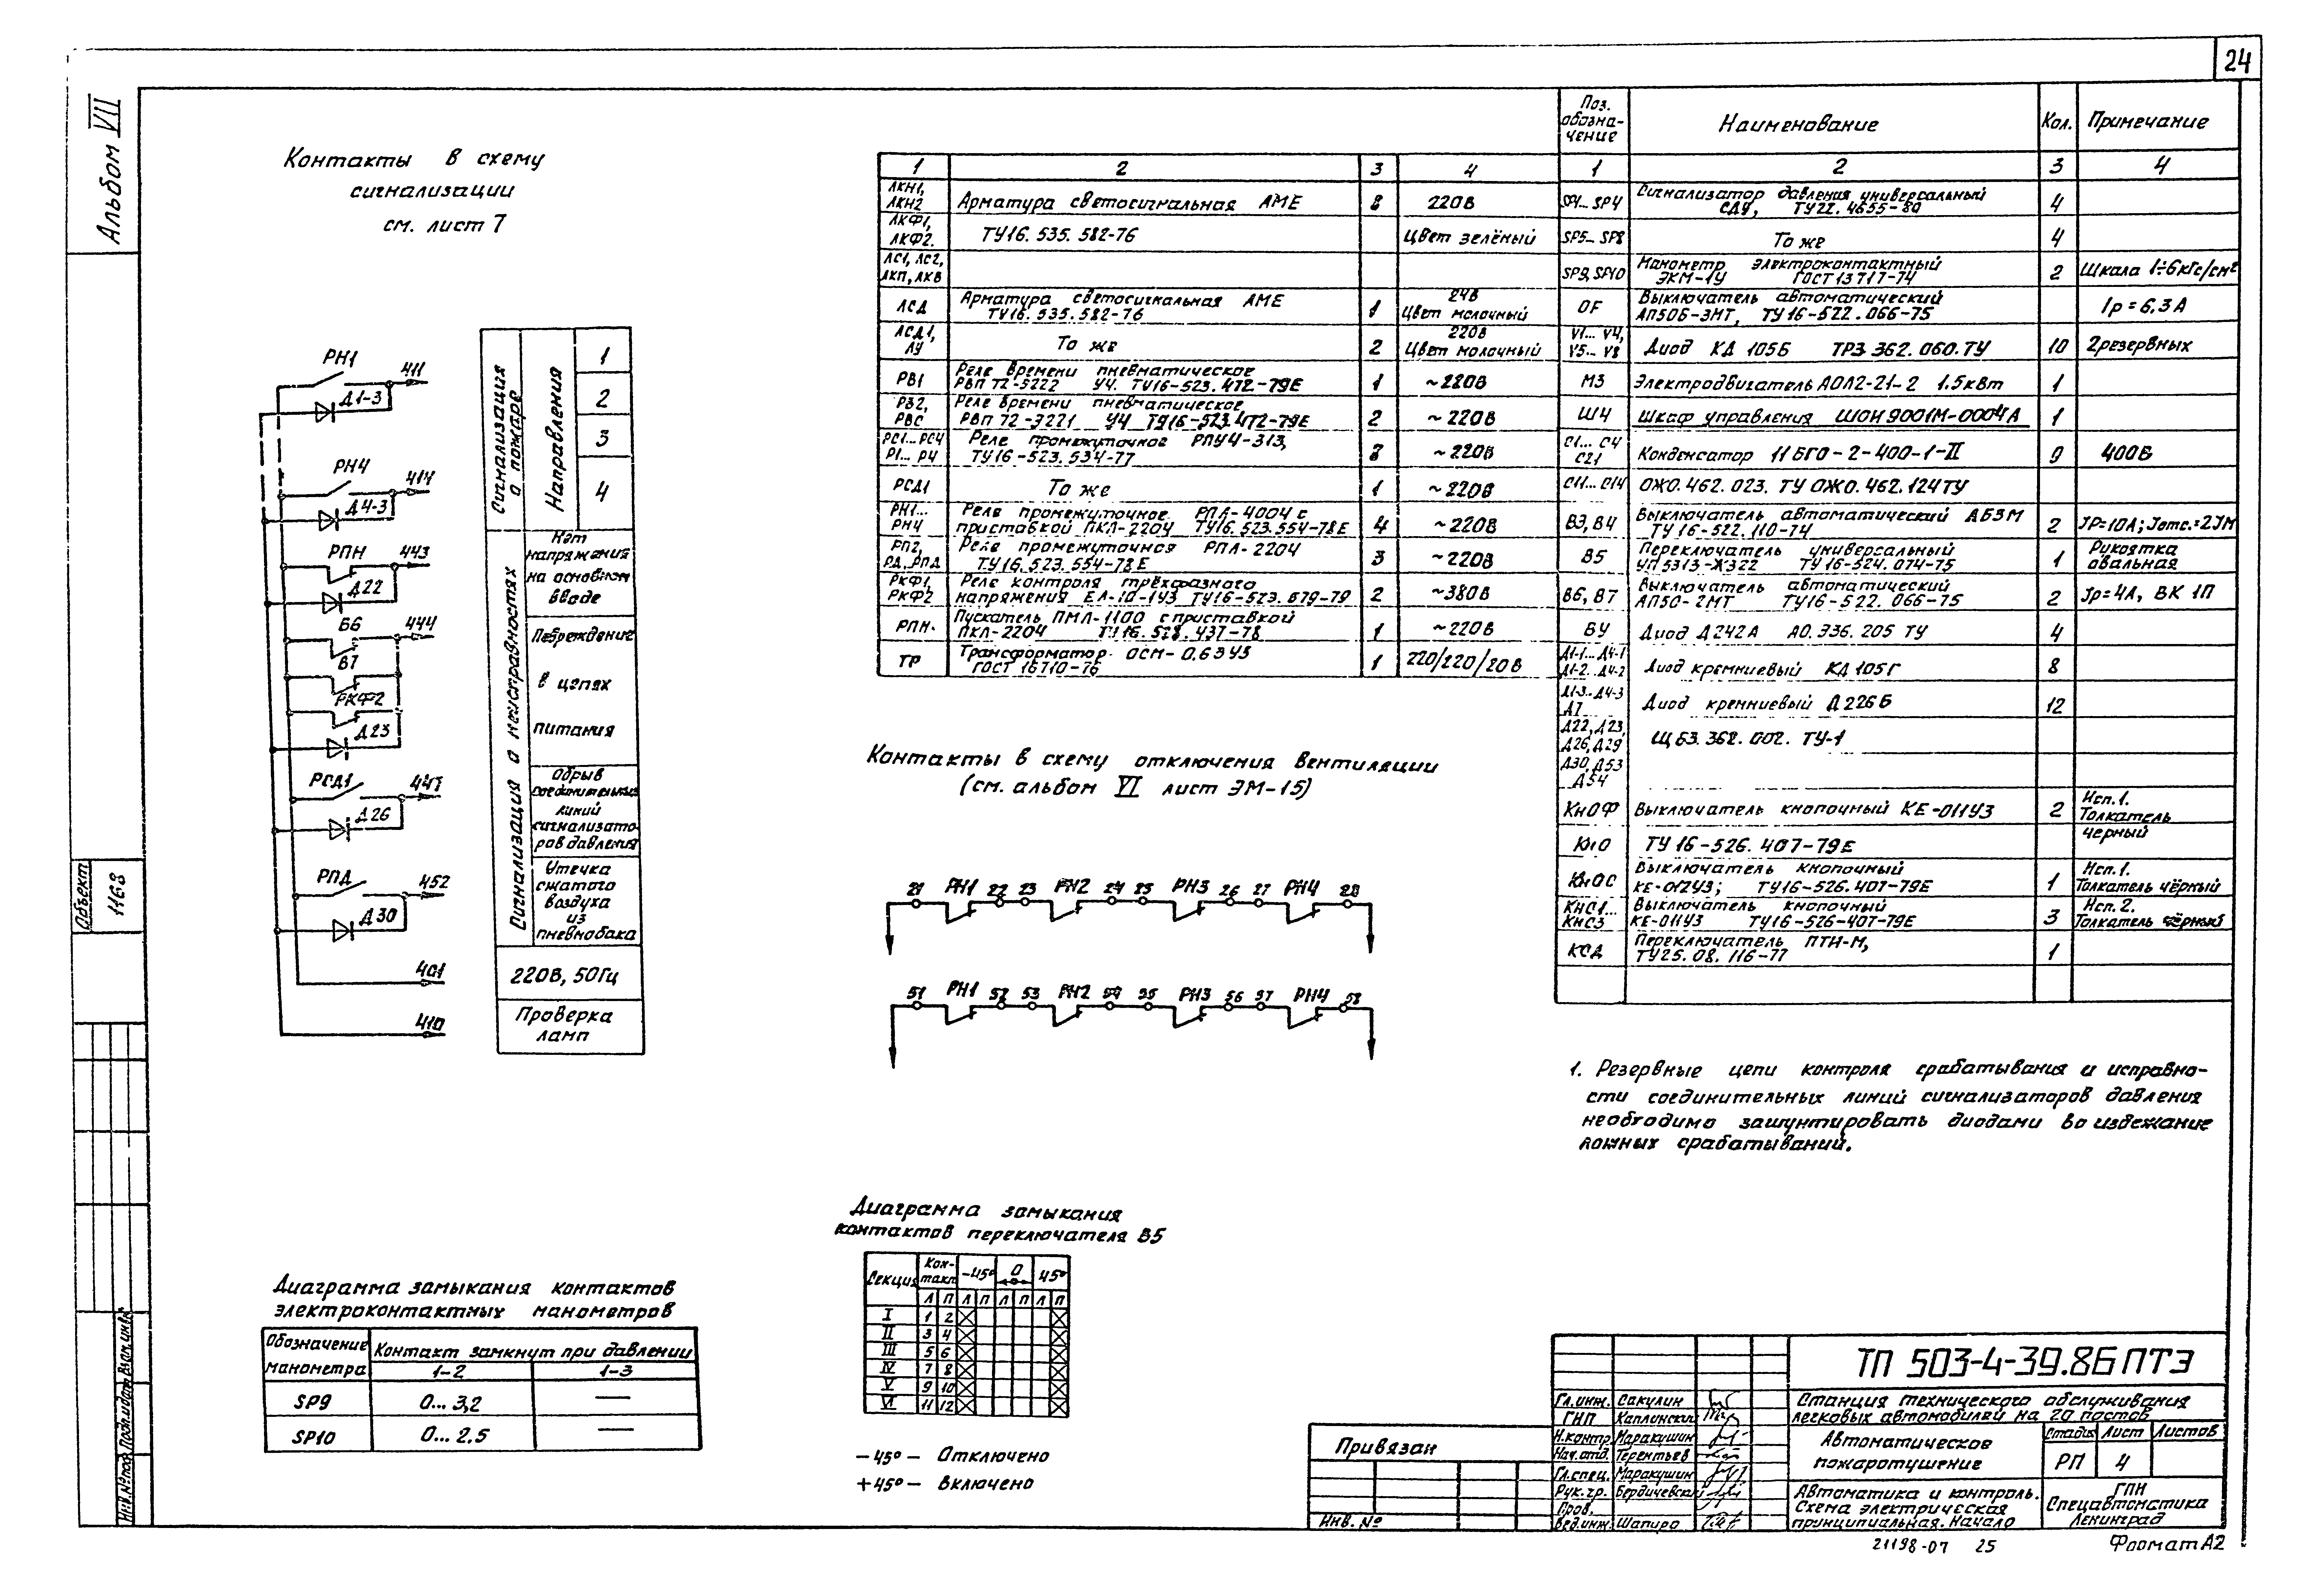 24
Альбом VII
Контакты в схему
сигнализации
см. лист 7
РН1
411
Д1-3
РН4
414
Д4-3
РПН
443
Д22
В6
444
В7
РКФ2
Д23
РСД1
447
Д26
РПД
452
Д30
401
410
Сигнализация о пожаре
Направления
1
2
3
4
Сигнализация о неисправностях
Нет
напряжения
на основном
вводе
Повреждение
в цепях
питания
Обрыв
соединительных
линий
сигнализато-
ров давления
Утечка
сжатого
воздуха
из
пневмобака
220В, 50Гц
Проверка
ламп
1 2 3 4
ЛКН1, ЛКН2 Арматура светосигнальная АМЕ 8 220В
ЛКФ1, ЛКФ2. ТУ16.535.582-76 Цвет зелёный
ЛС1, ЛС2, ЛКП, ЛКВ
ЛСД Арматура светосигнальная АМЕ ТУ16.535.582-76 1 24В Цвет молочный
ЛСД1, ЛУ То же 2 220В Цвет молочный
РВ1 Реле времени пневматическое РВП 72-3222 У4. ТУ16-523.472-79Е 1 ~220В
РВ2, РВС Реле времени пневматическое РВП 72-3221 У4 ТУ16-523.472-79Е 2 ~220В
РС1...РС4 Р1...Р4 Реле промежуточное РПУ4-313, ТУ16-523.534-77 ~220В
РСД1 То же 1 ~220В
РН1... РН4 Реле промежуточное РПЛ-4004 с приставкой ПКЛ-2204 ТУ16.523.554-78Е 4 ~220В
РП2, РД, РПД Реле промежуточное РПЛ-2204 ТУ16.523.554-78Е 3 ~220В
РКФ1, РКФ2 Реле контроля трёхфазного напряжения ЕЛ-10-1У3 ТУ16-523.679-79 2 ~380В
РПН. Пускатель ПМЛ-1100 с приставкой ПКЛ-2204 ТУ16.528.437-78 1 ~220В
ТР Трансформатор ОСМ-0,63У3 ГОСТ 16710-76 1 220/220/20В
Поз. обозна- чение Наименование Кол. Примечание
1 2 3 4
SP1...SP4 Сигнализатор давления универсальный СДУ, ТУ22.4655-80 4
SP5...SP8 То же 4
SP9, SP10 Манометр электроконтактный ЭКМ-1У ГОСТ 13717-74 2 Шкала 1÷6кгс/см²
QF Выключатель автоматический АП50Б-3МТ, ТУ16-522.066-75 Iр=6.3А
V1...V4, V5...V8 Диод КД 105Б ТР3.362.060.ТУ 10 2резервных
М3 Электродвигатель АОЛ2-21-2 1.5кВт 1
Ш4 Шкаф управления ШОИ 9001М-0004А 1
С1...С4 С21 Конденсатор МБГО-2-400-1-II 9 400В
С11...С14 ОЖО.462.023.ТУ ОЖО.462.124ТУ
В3, В4 Выключатель автоматический АБ3М ТУ16-522.110-74 2 Iр=10А; Iотс.=2Iн
В5 Переключатель универсальный УП5313-Ж322 ТУ16-524.074-75 1 Рукоятка овальная
В6, В7 Выключатель автоматический АП50-2МТ ТУ16-522.066-75 2 Iр=4А, ВК 1П
ВУ Диод Д242А АО.336.205 ТУ 4
Д1-1...Д4-1 Д1-2...Д4-2 Диод кремниевый КД 105Г 8
Д1-3...Д4-3 Д7 Диод кремниевый Д226Б 12
Д22, Д23, Д26, Д29 ЩБ3.362.002.ТУ-1
Д30, Д53 Д54
КнОФ Выключатель кнопочный КЕ-011У3 2 Исп.1. Толкатель
КнО ТУ16-526.407-79Е черный
КнОС Выключатель кнопочный КЕ-012У3; ТУ16-526.407-79Е 1 Исп.1. Толкатель чёрный
КнС1... КнС3 Выключатель кнопочный КЕ-011У3 ТУ16-526-407-79Е 3 Исп.2. Толкатель чёрный
КСД Переключатель ПТИ-М, ТУ25.08.116-77 1
Контакты в схему отключения вентиляции
(см. альбом VI лист ЭМ-15)
21 РН1 22 23 РН2 24 25 РН3 26 27 РН4 28
51 РН1 52 53 РН2 54 55 РН3 56 57 РН4 58
1. Резервные цепи контроля срабатывания и исправно-
сти соединительных линий сигнализаторов давления
необходимо зашунтировать диодами во избежание
ложных срабатываний.
Диаграмма замыкания
контактов переключателя В5
Секция Кон- такт -45° 0 45°
Л П Л П Л П Л П
I 1 2
II 3 4
III 5 6
IV 7 8
V 9 10
VI 11 12
-45° - Отключено
+45° - Включено
Диаграмма замыкания контактов
электроконтактных манометров
Обозначение манометра Контакт замкнут при давлении
1-2 1-3
SP9 0...3,2 —
SP10 0...2.5 —
Объект
1168
Инв.№под. Подп.и дата Взам.инв.№
Привязан
Инв.№
ТП 503-4-39.86ПТЭ
Гл.инж. Сакулин
ГИП Каплинский
Н.контр. Маракушин
Нач.отд. Терентьев
Гл.спец. Маракушин
Рук.гр. Бердичевский
Пров.
Вед.инж. Шапиро
Станция технического обслуживания
легковых автомобилей на 20 постов
Автоматическое
пожаротушение
Стадия Лист Листов
РП 4
Автоматика и контроль.
Схема электрическая
принципиальная. Начало
ГПИ
Спецавтоматика
Ленинград
21198-07 25
Формат А2